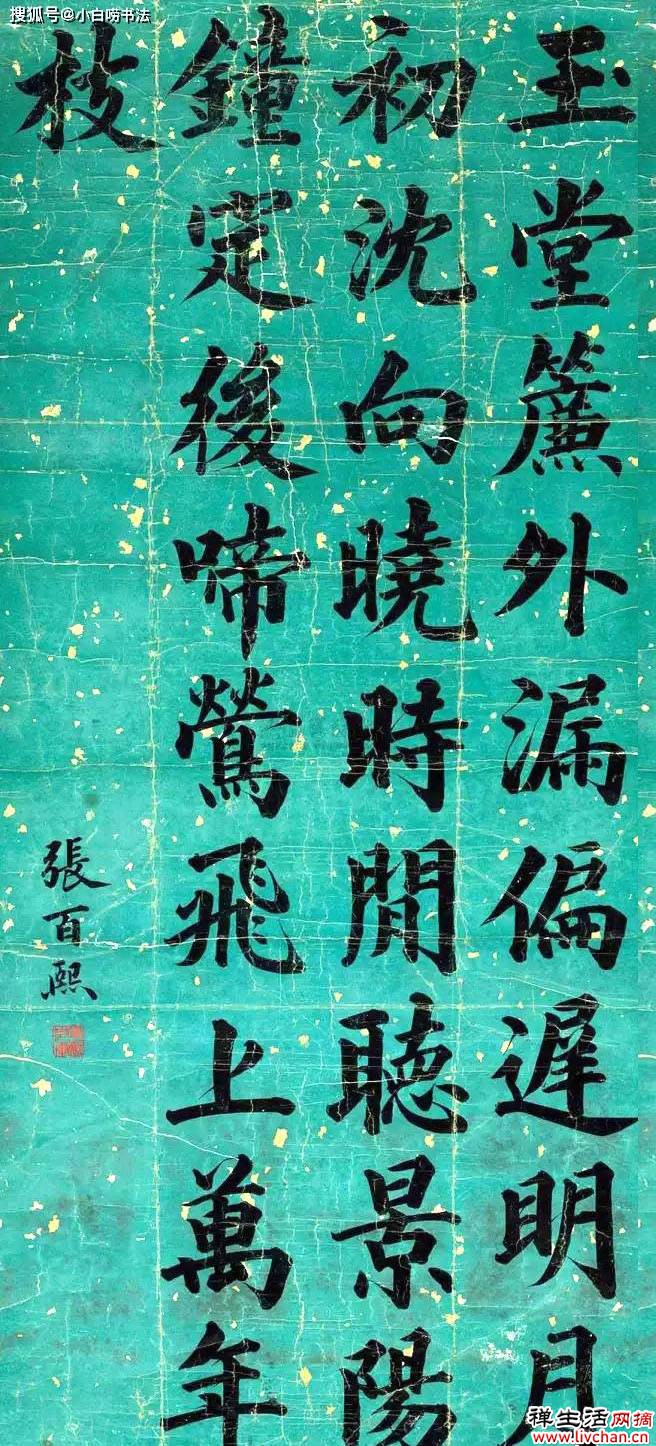 搜狐号@小白唠书法
玉堂簾外漏偏遲明月
初沈向曉時閒聽景陽
鐘定後啼鶯飛上萬年
枝
張百熙
禅生活网摘
www.livchan.cn